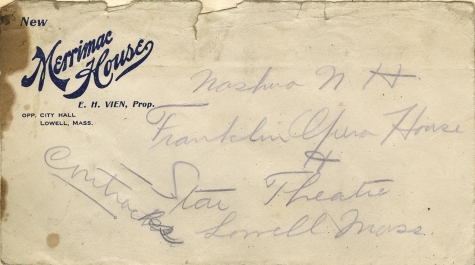 New
Merrimac
House
E. H. VIEN, Prop.
OPP. CITY HALL
LOWELL, MASS.
Nashua N H
Franklin Opera House
+
Star Theatre
Lowell Mass.
Contracts